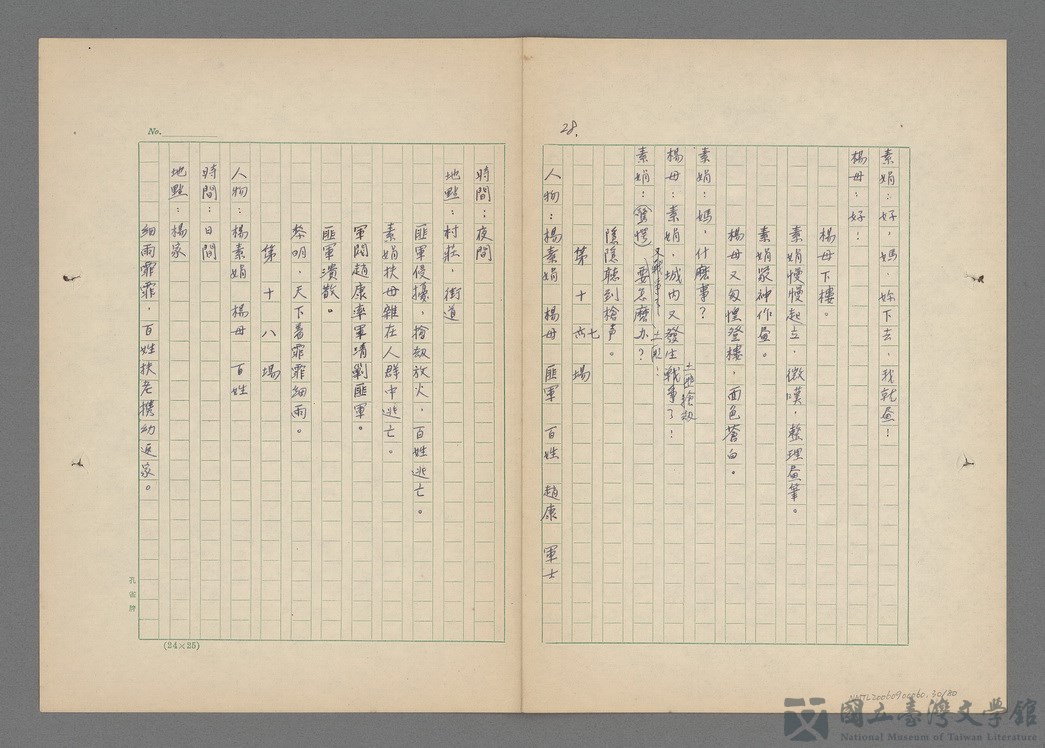 28.
素娟：好，媽，妳下去，我就畫！
楊母：好！
楊母下樓。
素娟慢慢起立，微嘆，整理畫筆。
素娟聚神作畫。
楊母又匆惶登樓，面色蒼白。
素娟：媽，什麼事？
楊母：素娟，城內又發生戰爭了！
土匪搶劫
素娟：（驚愕）要怎麼办？
土匪！
隐隐聽到槍声。
第十六七場
人物：楊素娟 楊母 匪軍 百姓 趙康 軍士
時間：夜間
地點：村莊，街道
匪軍侵擾，搶劫放火，百姓逃亡。
素娟扶母雜在人群中逃亡。
軍閥趙康率軍清剿匪軍。
匪軍潰散。
黎明，天下著霏霏細雨。
第十八場
人物：楊素娟 楊母 百姓
時間：日間
地點：楊家
細雨霏霏，百姓扶老携幼返家。
No.
孔雀牌
(24×25)
NMTL20060900060.30/80
國立臺灣文學館
National Museum of Taiwan Literature